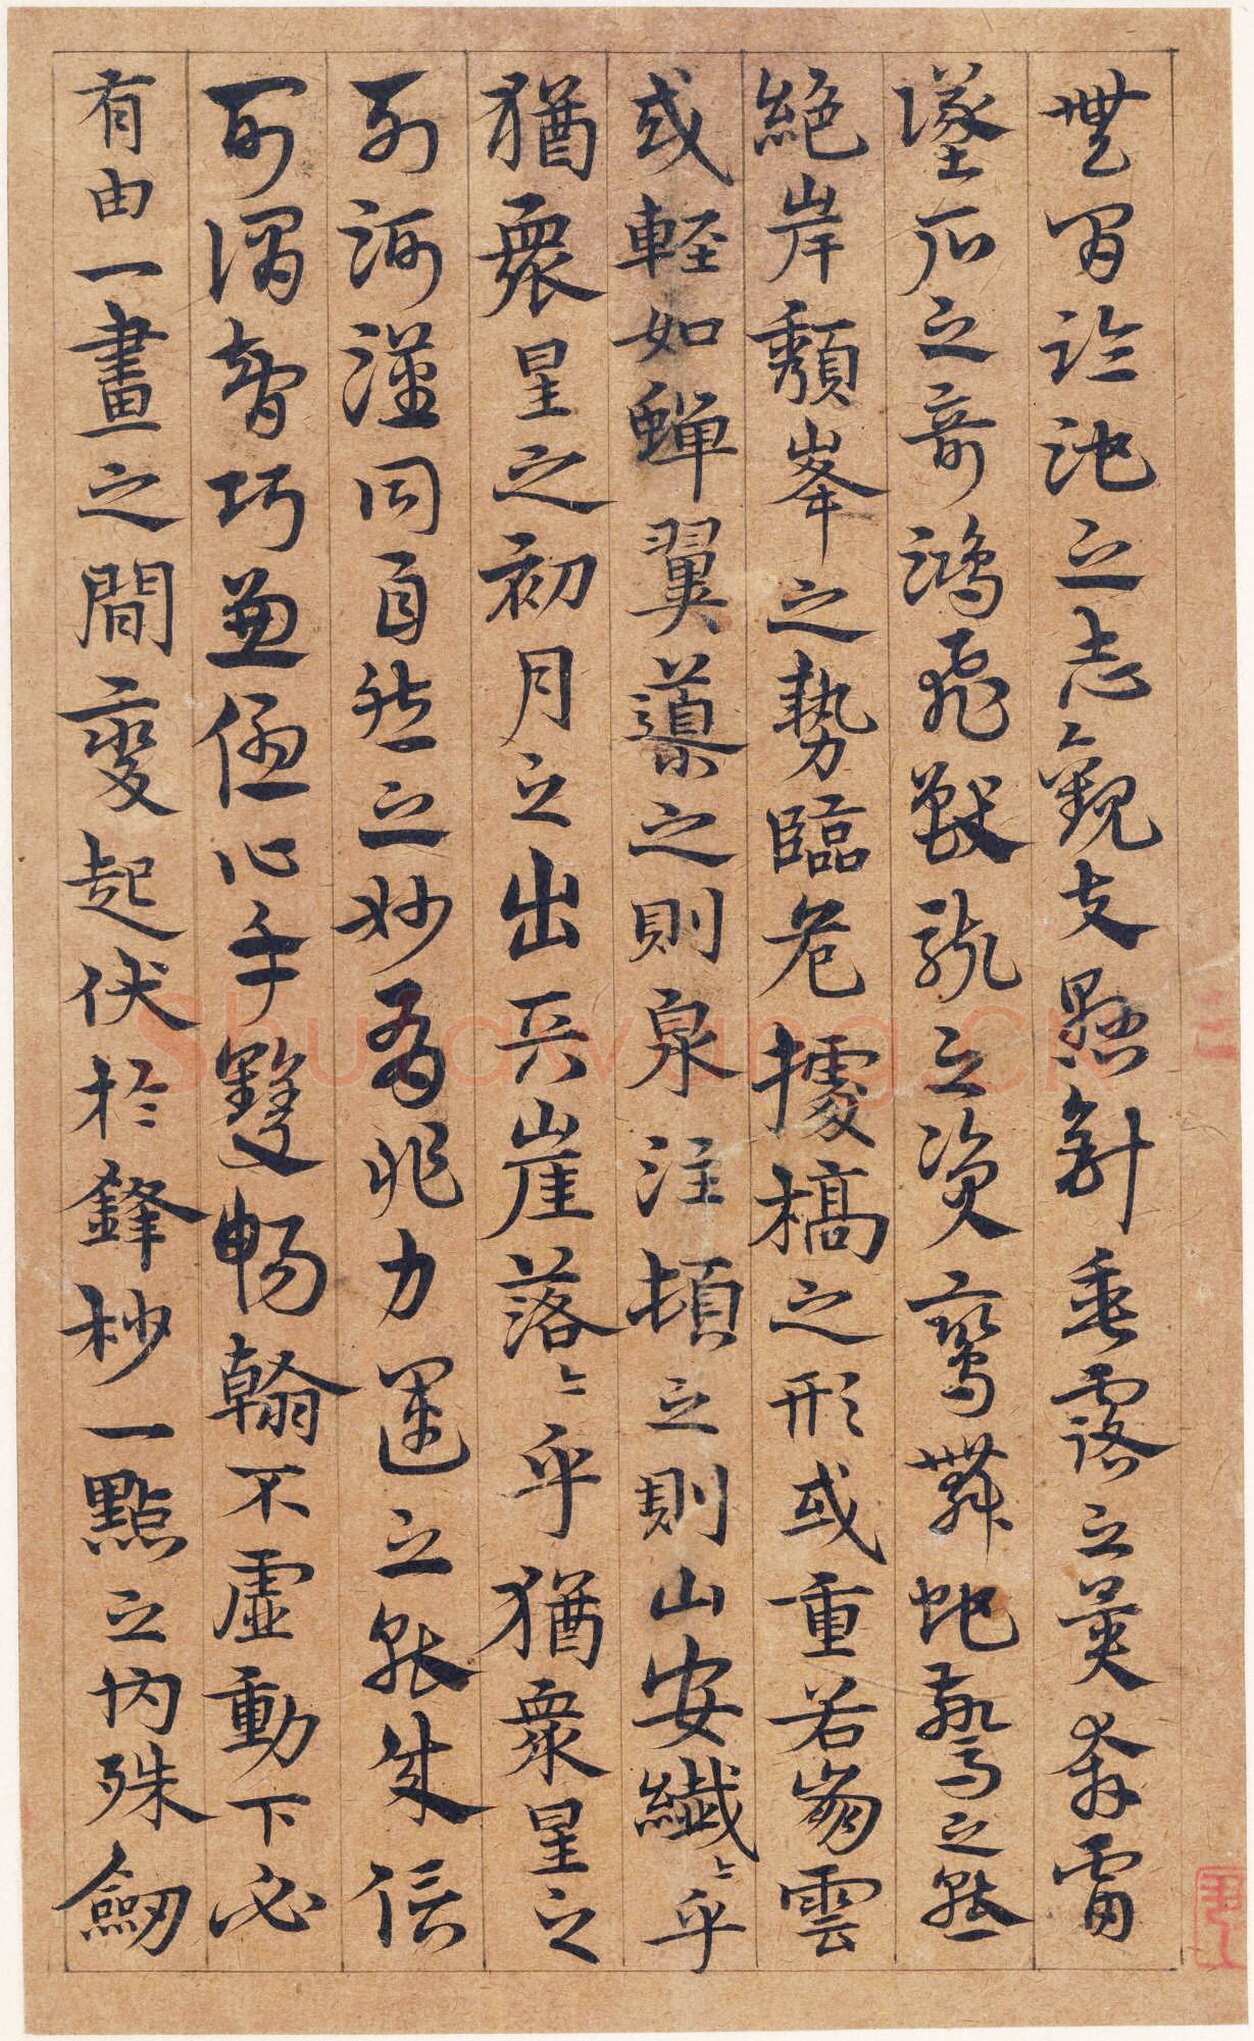 無間臨池之志觀夫懸針垂露之異奔雷
墜石之奇鴻飛獸駭之資鸞舞蛇驚之態
絕岸頹峯之勢臨危據槁之形或重若崩雲
或輕如蟬翼導之則泉注頓之則山安纖〻乎
猶衆星之初月之出天崖落〻乎猶衆星之
列河漢同自然之妙有非力運之能成信
可謂智巧兼優心手雙暢翰不虛動下必
有由一畫之間變起伏於鋒杪一點之內殊衄
Shufawang.cn